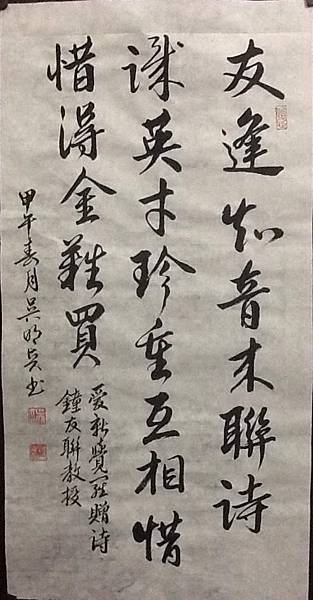 友逢知音聯詩
識英才珍重互相惜
惜得金難買
愛新覺羅贈詩
鐘友聯教授
甲午春月吳明書